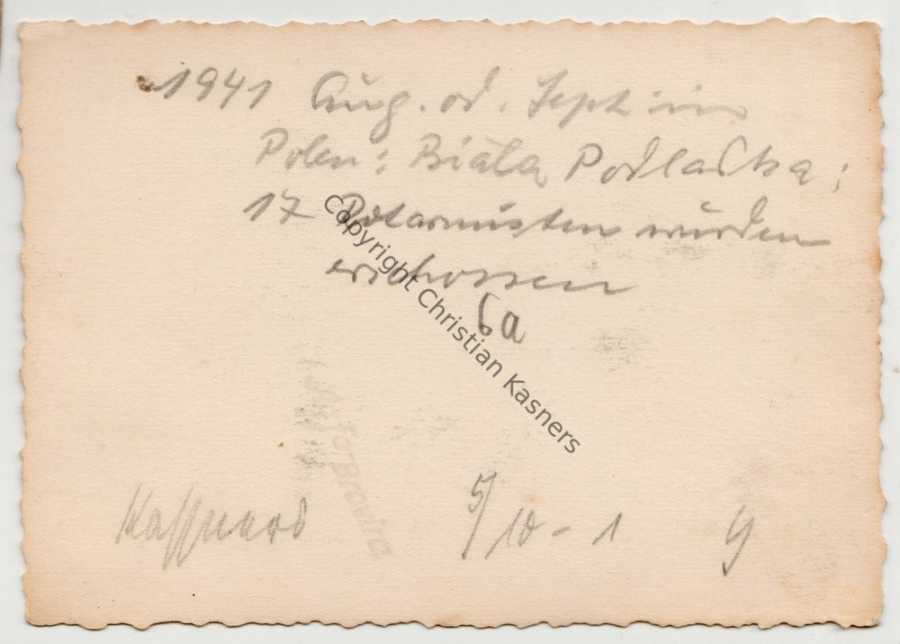 1941 Aug. od. Sept. in
Polen: Biala Podlaska:
17 Rotarmisten wurden
erschossen
6a
Copyright Christian Kasners
5/10 - 1